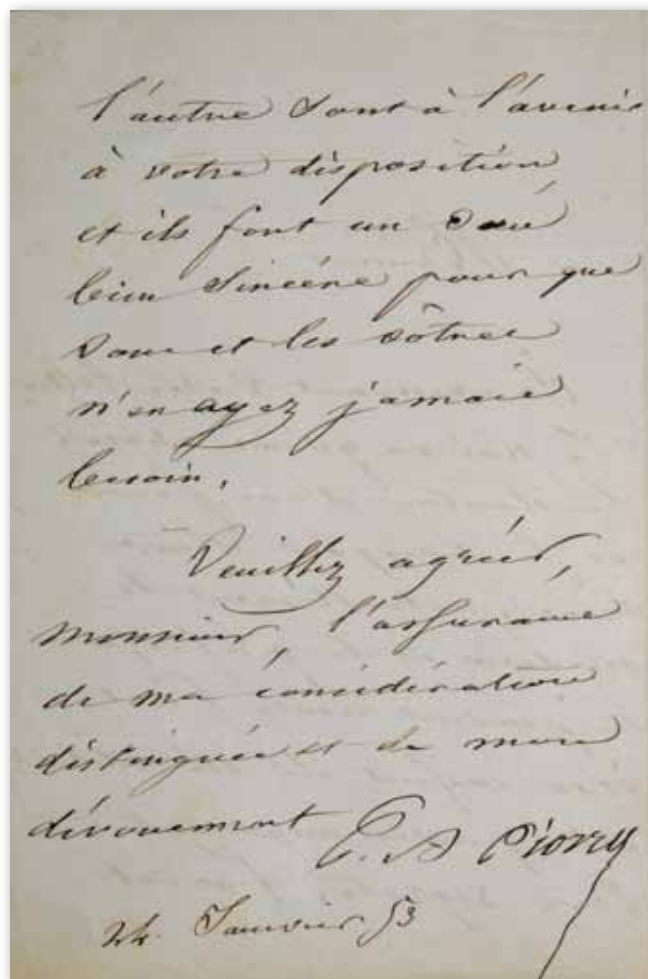 l'autre sont à l'avenir
à votre disposition
et ils font un vœu
bien sincère pour que
vous et les vôtres
n'en ayez jamais
besoin.
Veuillez agréer,
monsieur, l'assurance
de ma considération
distinguée et de mon
dévouement P. A Piorry
24 Janvier 53